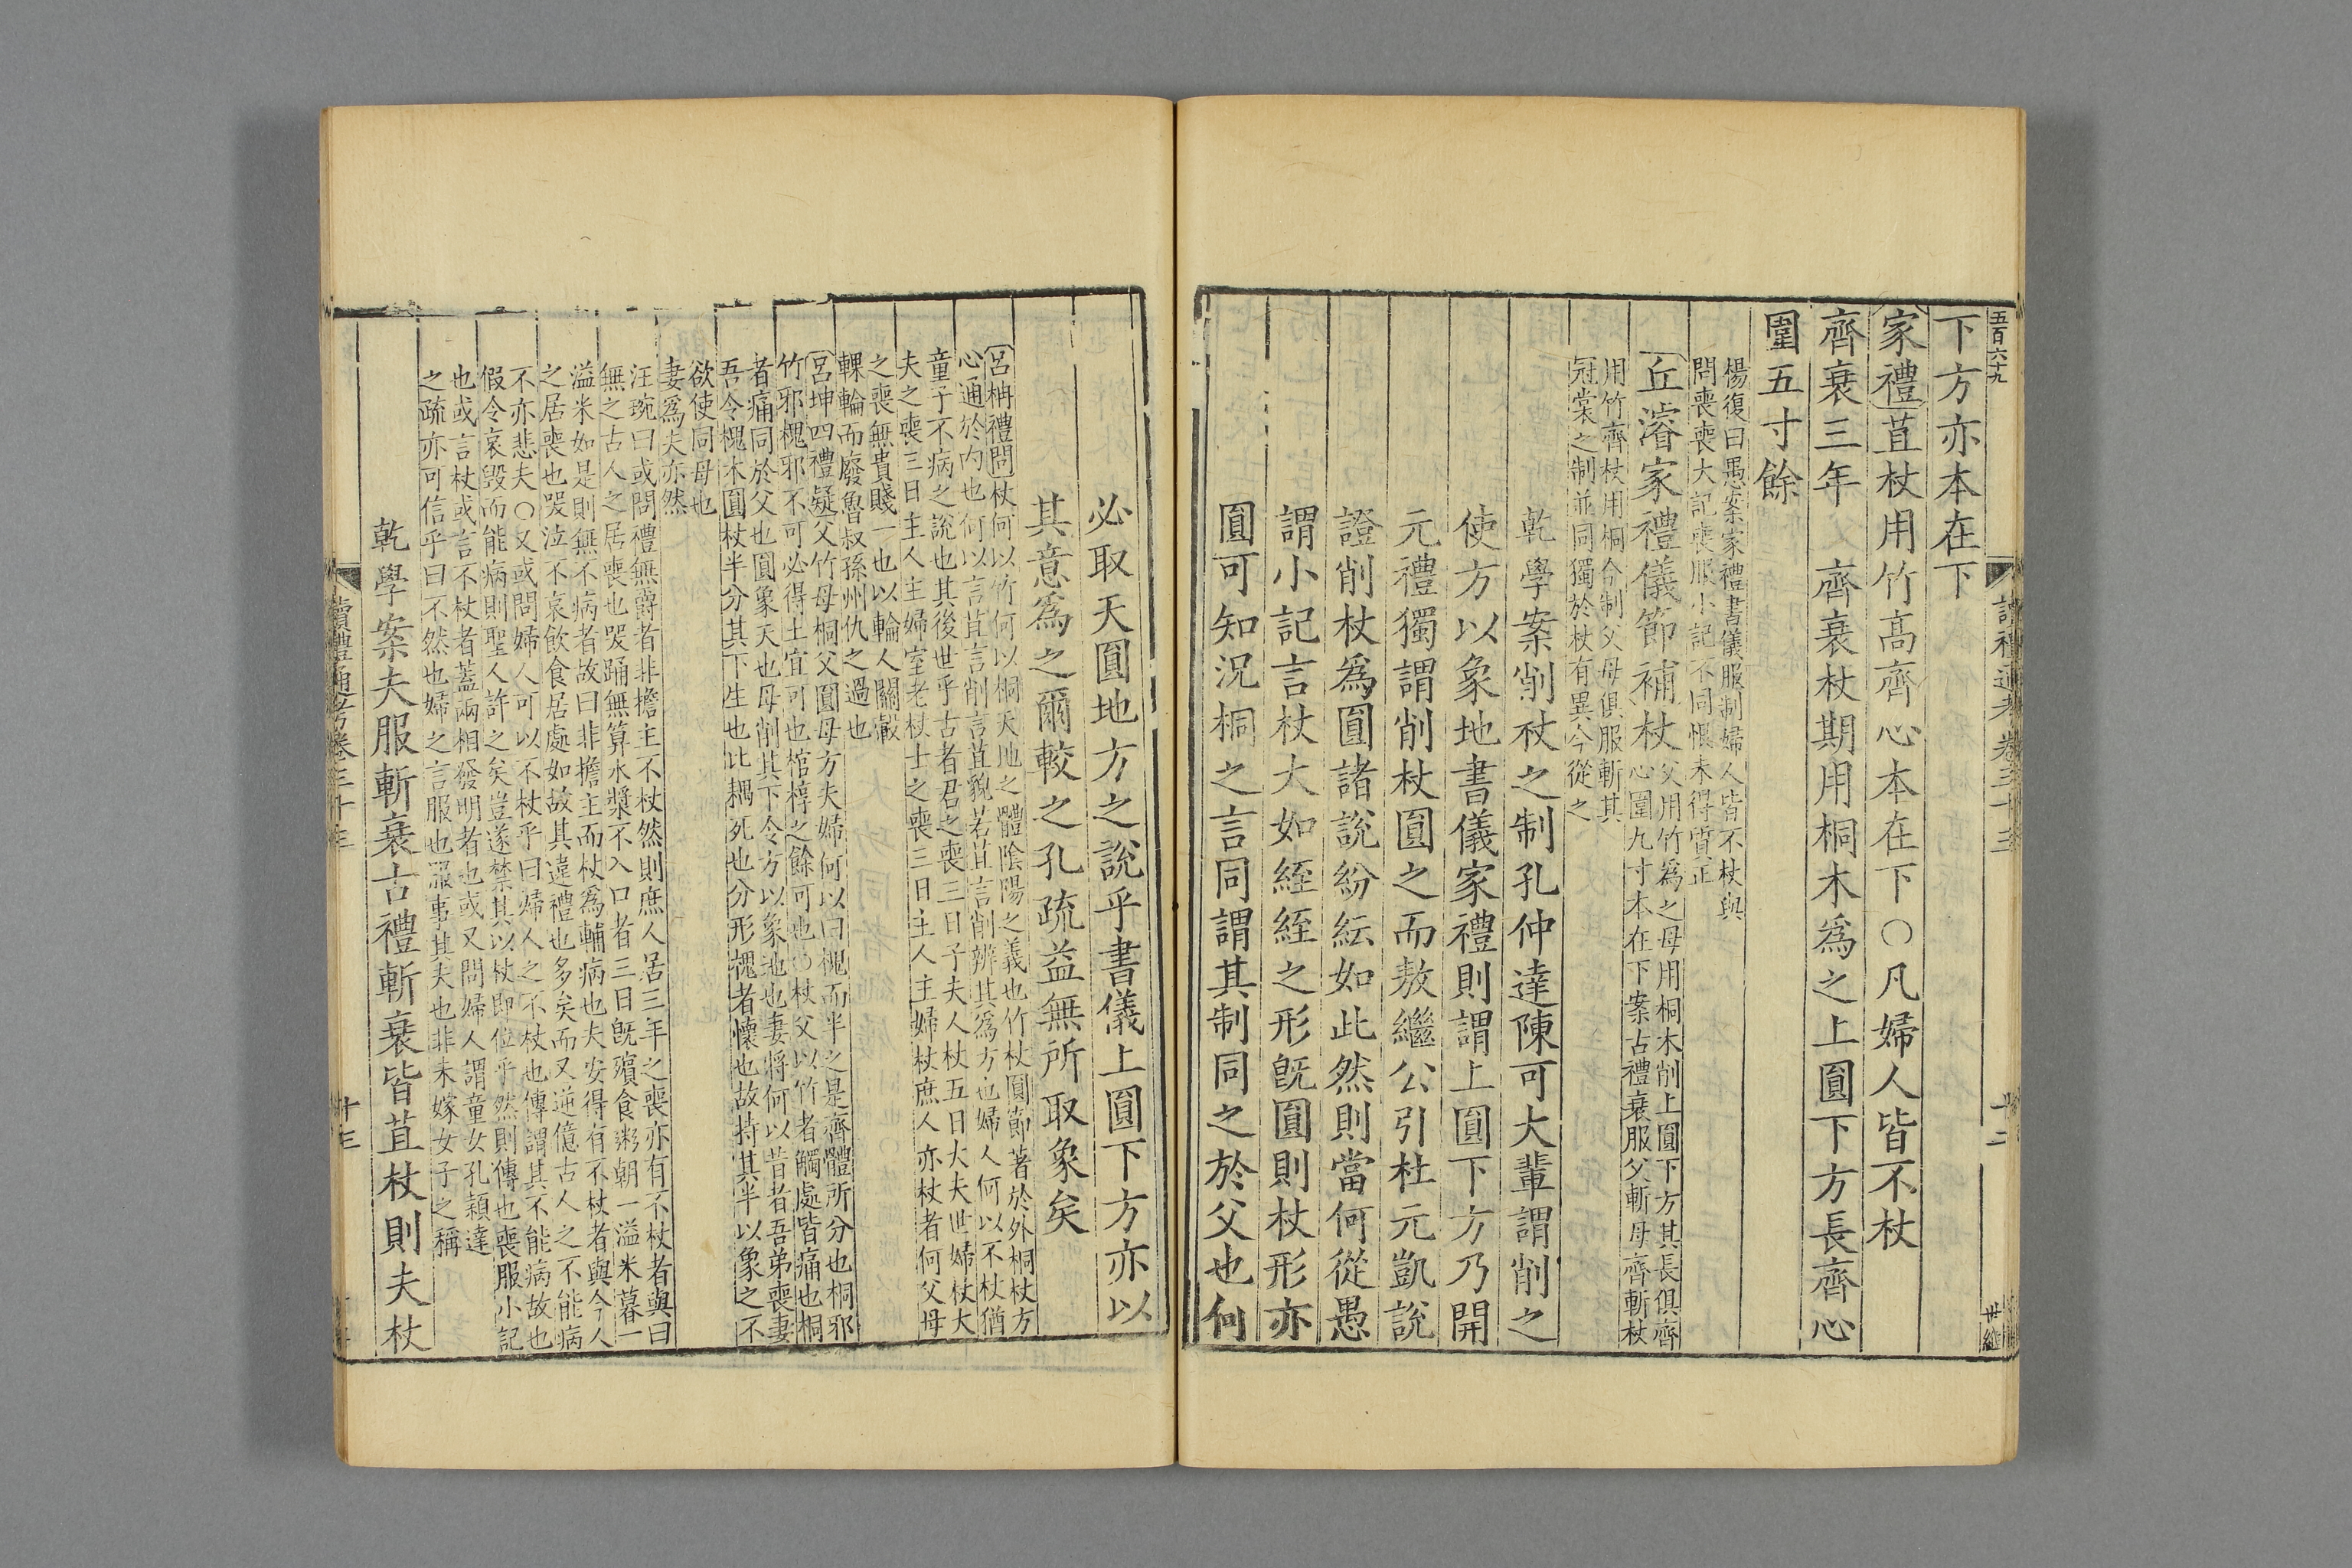 五百六十九
讀禮通考卷三十三
十二
世繼
下方亦本在下
家禮苴杖用竹高齊心本在下○凡婦人皆不杖
齊衰三年
齊衰杖期用桐木爲之上圓下方長齊心
圍五寸餘
楊復曰愚案家禮書儀服制婦人皆不杖與
問喪喪大記喪服小記不同恨未得質正
丘濬家禮儀節補杖
父用竹爲之母用桐木削上圓下方其長俱齊
心圍九寸本在下案古禮衰服父斬母齊斬杖
用竹齊杖用桐今制父母俱服斬其
冠裳之制並同獨於杖有異今從之
乾學案削杖之制孔仲達陳可大輩謂削之
使方以象地書儀家禮則謂上圓下方乃開
元禮獨謂削杖圓之而敖繼公引杜元凱說
證削杖爲圓諸說紛紜如此然則當何從愚
謂小記言杖大如絰絰之形旣圓則杖形亦
圓可知況桐之言同謂其制同之於父也何
必取天圓地方之說乎書儀上圓下方亦以
其意爲之爾較之孔疏益無所取象矣
呂柟禮問杖何以竹何以桐天地之體陰陽之義也竹杖圓節著於外桐杖方
心通於內也何以言苴言削言苴貌若苴言削辨其爲方也婦人何以不杖猶
童子不病之說也其後世乎古者君之喪三日子夫人杖五日大夫世婦杖大
夫之喪三日主人主婦室老杖士之喪三日主人主婦杖庶人亦杖者何父母
之喪無貴賤一也以輪人關轂
輠輪而廢魯叔孫州仇之過也
呂坤四禮疑父竹母桐父圓母方夫婦何以曰槐而半之是齊體所分也桐邪
竹邪槐邪不可必得土宜可也棺椁之餘可也○杖父以竹者觸處皆痛也桐
者痛同於父也圓象天也母削其下令方以象地也妻將何以昔者吾弟喪妻
吾令槐木圓杖半分其下生也比耦死也分形槐者懷也故持其半以象之不
欲使同母也
妻爲夫亦然
汪琬曰或問禮無爵者非擔主不杖然則庶人居三年之喪亦有不杖者與曰
無之古人之居喪也哭踊無算水漿不入口者三日旣殯食粥朝一溢米暮一
溢米如是則無不病者故曰非擔主而杖爲輔病也夫安得有不杖者與今人
之居喪也哭泣不哀飲食居處如故其違禮也多矣而又逆億古人之不能病
不亦悲夫○又或問婦人可以不杖乎曰婦人之不杖也傳謂其不能病故也
假令哀毀而能病則聖人許之矣豈遂禁其以杖即位乎然則傳也喪服小記
也或言杖或言不杖者蓋兩相發明者也或又問婦人謂童女孔穎達
之疏亦可信乎曰不然也婦之言服也服事其夫也非未嫁女子之稱
乾學案夫服斬衰古禮斬衰皆苴杖則夫杖
讀禮通考卷三十三
十三